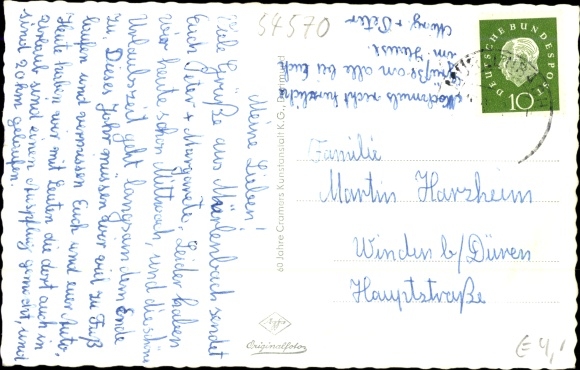 54570
Meine Lieben!
Viele Grüße aus sendet
Euch Peter + Margarete. Leider haben
wir heute schon Mittwoch, und die schöne
Urlaubszeit geht langsam dem Ende
zu. Dieses Jahr müssen wir viel zu Fuß
laufen und vermissen Euch und euer Auto.
Heute haben wir mit Leuten die dort auch in
Urlaub sind einen Ausflug gemacht, und
sind 20 km gelaufen.
Nochmals recht herzliche
Grüße an alle bei Euch
im Hause.
+ Peter
DEUTSCHE BUNDESPOST
10
Familie
Martin Harzheim
Winden b/Düren
Hauptstraße
60 Jahre Cramers Kunstanstalt K.G., Dortmund
Agfa
Originalfoto
€ 4,-